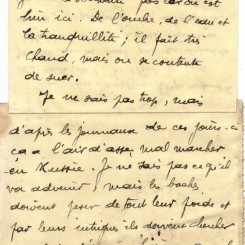 pas car on est
bien ici. De l'ombre, de l'eau et
la tranquillité ; il fait très
chaud, mais on se contente
de suer.
Je ne sais pas trop, mais
d'après les journaux de ces jours-ci
ça a l'air d'assez mal marcher
en Russie. Je ne sais pas ce qu'il
va advenir, mais les boches
doivent peser de tout leur poids et
par leurs intrigues ils doivent chercher